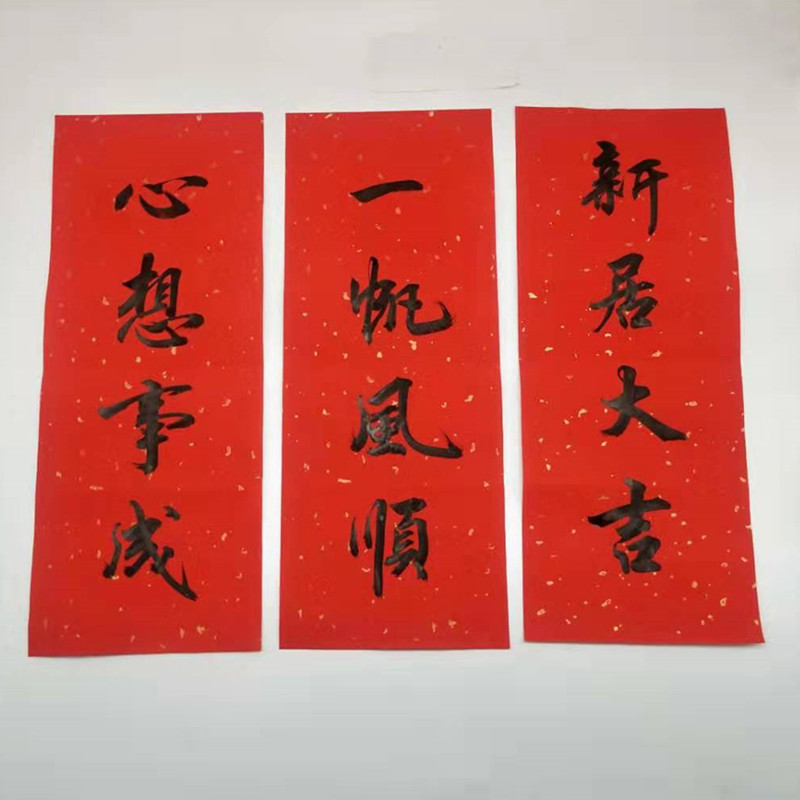 新居大吉
一帆風順
心想事成